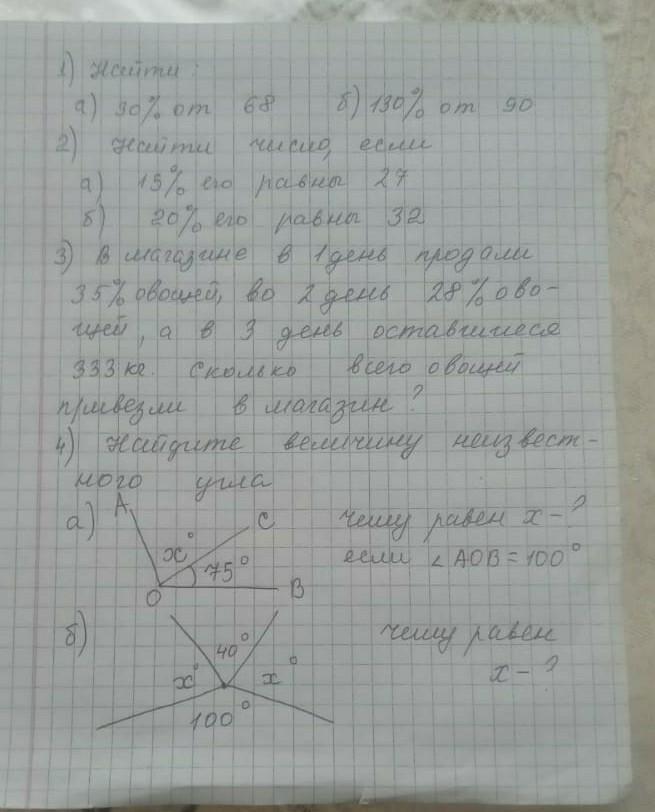 1) Найти:
а) 30% от 68 б) 130% от 90
2) Найти число, если
а) 15% его равны 27
б) 20% его равны 32
3) В магазине в 1 день продали
35% овощей, во 2 день 28% ово-
щей, а в 3 день оставшиеся
333 кг. Сколько всего овощей
привезли в магазин?
4) Найдите величину неизвест-
ного угла
а) A x° C 75° O B чему равен x - ?
если ∠AOB = 100°
б) 40° x° x° 100° чему равен
x - ?